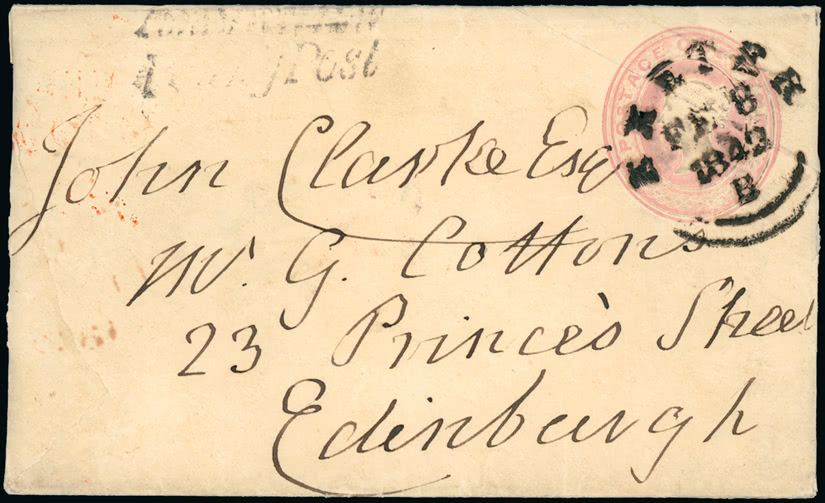 Penny Post
POSTAGE
EXETER
FE 8
1842
B
John Clarke Esq
Mr. G. Cotton's
23 Prince's Street
Edinburgh